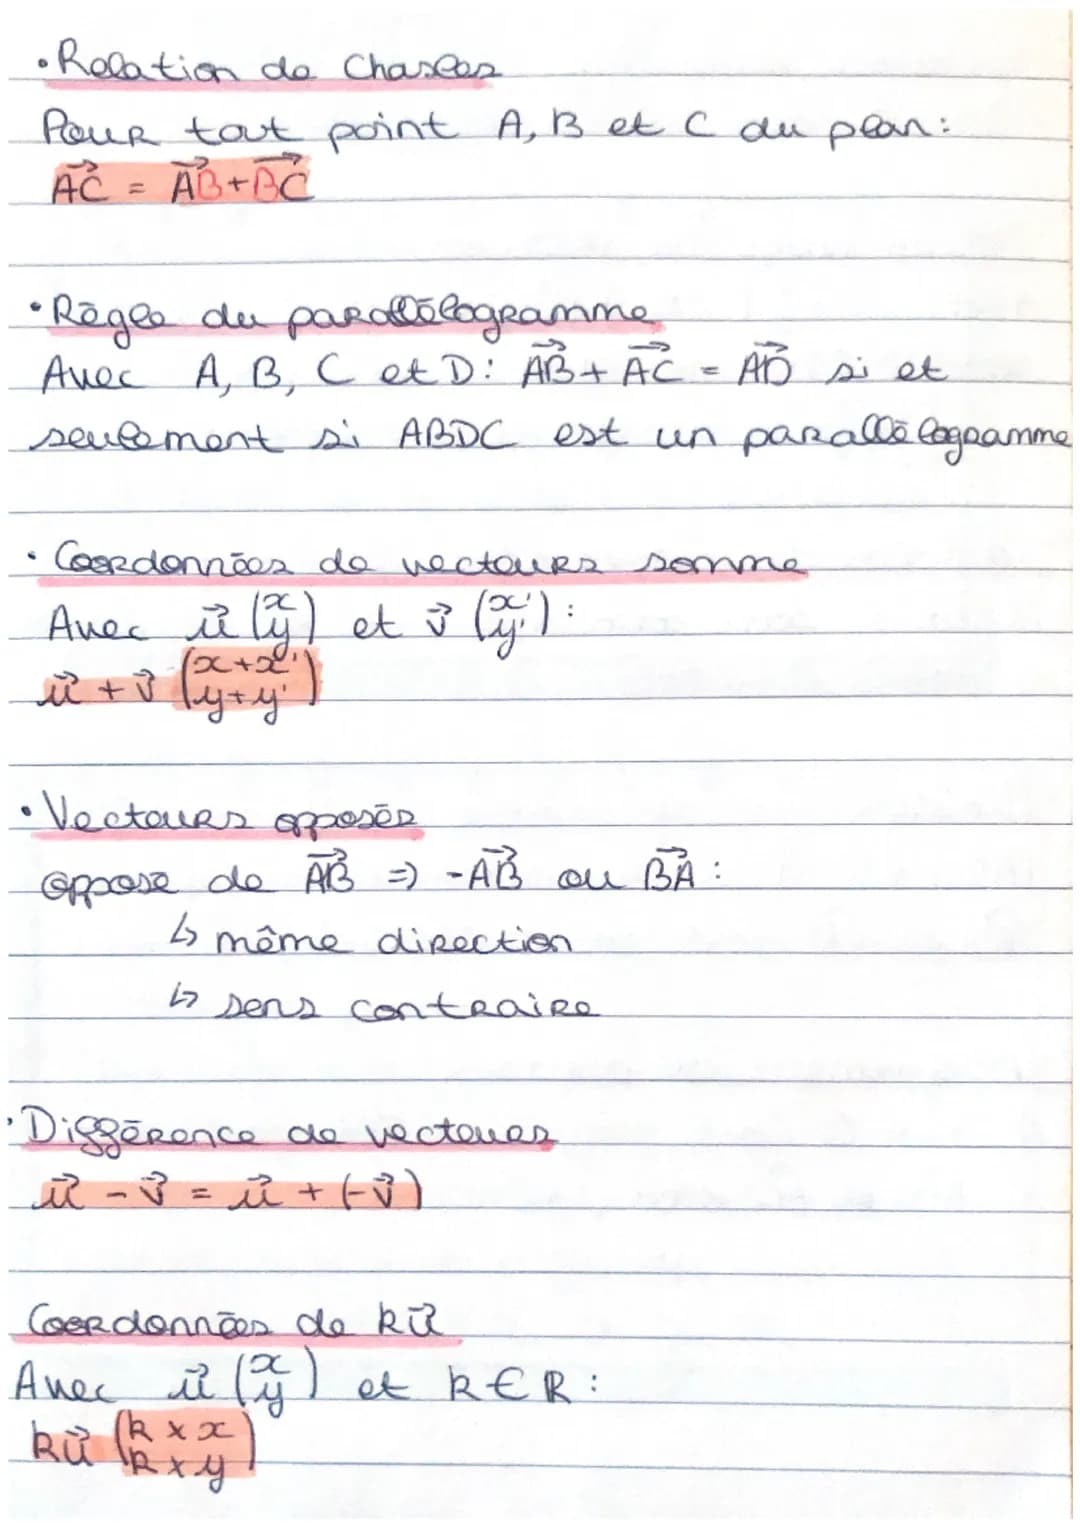 • Relation de Chasles
Pour tout point A, B et C du plan :
AC⃗ = AB⃗ + BC⃗
• Règle du parallélogramme
Avec A, B, C et D : AB⃗ + AC⃗ = AD⃗ si et
seulement si ABDC est un parallélogramme
• Coordonnées de vecteurs somme
Avec u⃗ (x y) et v⃗ (x' y') :
u⃗ + v⃗ (x+x' y+y')
• Vecteurs opposés
opposé de AB⃗ => -AB⃗ ou BA⃗ :
↳ même direction
↳ sens contraire
• Différence de vecteurs
u⃗ - v⃗ = u⃗ + (-v⃗)
Coordonnées de ku⃗
Avec u⃗ (x y) et k ∈ R :
ku⃗ (k × x k × y)